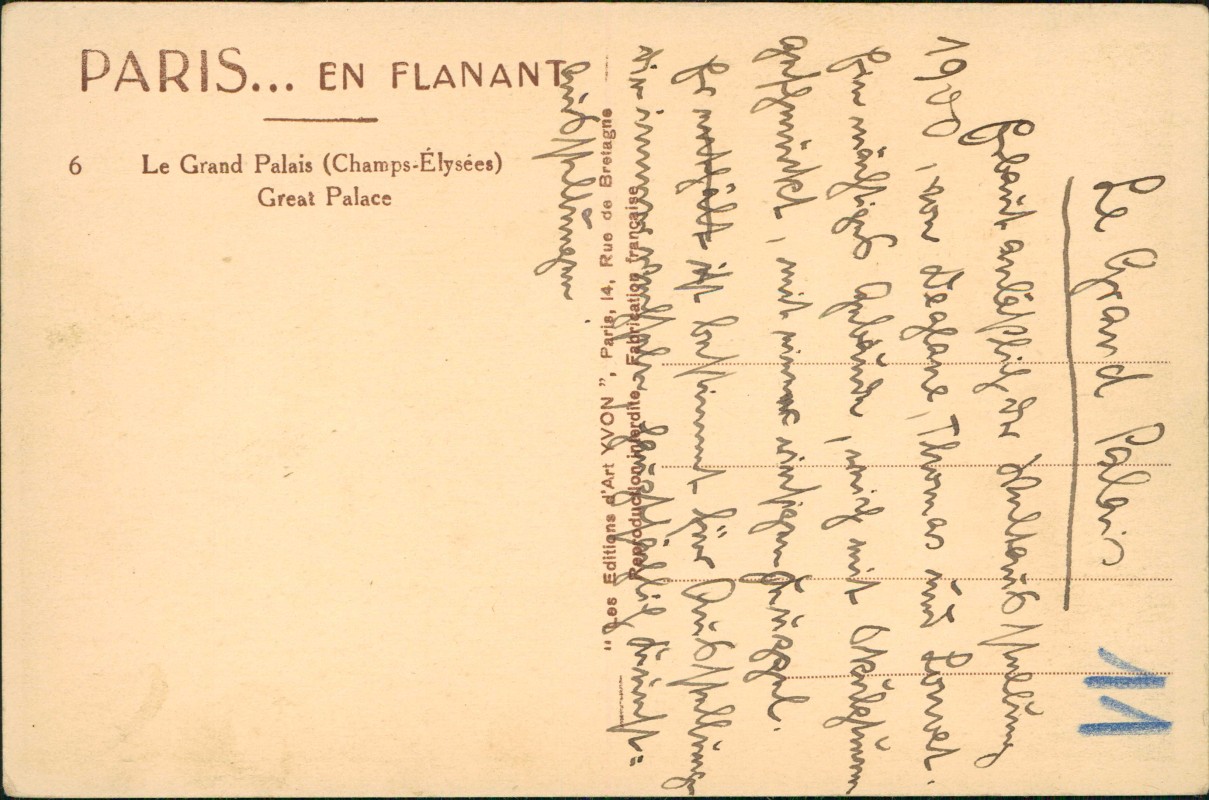 PARIS... EN FLANANT
6 Le Grand Palais (Champs-Élysées)
Great Palace
"Les Editions d'Art YVON", Paris, 14, Rue de Bretagne
Reproduction interdite. Fabrication française
Le Grand Palais
Erbaut anläßlich der Weltausstellung
1900, von Deglane, Thomas und Louvet.
Ein mächtiges Gebäude, reich mit Skulpturen
geschmückt, mit einer Kuppel.
ist bestimmt für
Kunst=
ausstellungen